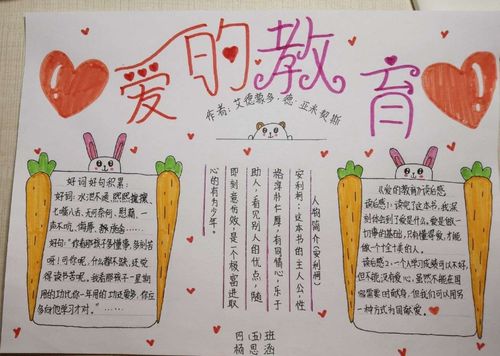 爱的教育
作者:艾德蒙多·德·亚米契斯
好词好句积累:
好词:水泄不通、熙熙攘攘、
七嘴八舌、无何奈何、慰藉、一
声不吭、侮辱、教诲
好句:你看那孩子多懂事,多刻苦
呀!可你呢,什么都不缺,还觉
得读书苦呢。我看那孩子一星期
用的功比你一年用的功还要多,你应
多向他学习才对。
人物简介(安利柯)
安利柯:这本书的主人公,性
格淳朴仁厚,有同情心,乐于
助人,看见别人的优点,随
即刻意仿效,是一个极富进取
心的有为少年。
《爱的教育》读后感
读后感1:读吧了这本书,我深
刻体会到了爱是什么。爱是做一
切事的基础,只有懂得爱,才能
做一个十全十美的人。
读后感2:一个人学习成绩可以不好,
但不能没有爱心,虽然不能在国
需要时献身,但我们可以用另
一种方式为国献爱。
四(五)班
杨思涵